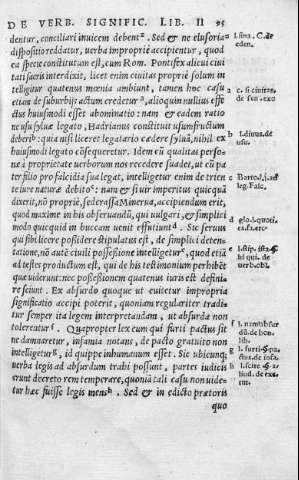 DE VERB. SIGNIFIC. LIB. II 95
dentur, conciliari inuicem debent. Sed & ne elusoria
dispositio reddatur, verba impropriè accipientur, quod
ea specie constitutum est, cum Rom. Pontifex alicui ciui
tati sacris interdixit, licet enim ciuitas propriè solum in
telligitur quatenus mœnia ambiunt, tamen hoc casu
etiam de suburbijs actum credetur, alioquin nullius effe
ctus huiusmodi esset abominatio: nam & eadem ratio
ne usu syluæ legato, Hadrianus constituit usumfructum
deberi: quia nisi liceret legatario cædere syluã, nihil ex
huiusmodi legato cõsequeretur. Idem cũ qualitas perso
næ à proprietate verborum nos recedere suadet, ut cũ pa
ter filio pro falcidia sua legat, intelligetur enim de trien
te iure naturæ debito: nam & si uir imperitus quicquã
dixerit, nõ propriè, sed crassa Minerua, accipiendum erit,
quod maximè in his obseruandũ, qui vulgari, & simplici
modo quicquid in buccam uenit effutiunt. Sic seruus
qui sibi licere possidere stipulatus est, de simplici deten-
tatione, nõ autẽ ciuili possessione intelligetur, quod etiã
ad testes producitum est, qui de his testimonium perhibẽt
quæ uiderunt: nec possessionem quatenus iuris est defini-
re sciunt. Ex absurdo quoque ut euitetur impropria
significatio accipi poterit, quoniam regulariter tradi-
tur semper ita legem interpretandam, ut absurda non
tolerentur. Quapropter lex cum qui furti pactus sit
ne damnaretur, infamia notans, de pacto gratuito non
intelligetur, id quippe inhumanum esset. Sic ubicunq;
uerba legis ad absurdum trahi possunt, partes iudicis
erunt decreto rem temperare, quoniã tali casu non uide-
tur hæc fuisse legis mens. Sed & in edicto prætoris
quo
l. sina. C. de
eden.
a c. si ciuitas.
de sen. exc
b l. diuus. de
usu.
c Bartol. j. ad
leg. Falc.
e l. stip. ista. §
hi qui. de
verb. obl.